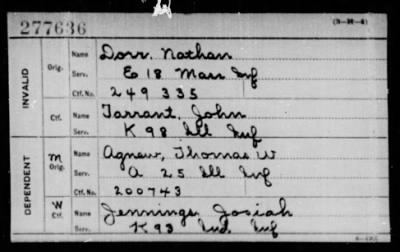 277636
(3-H-4)
INVALID
Orig.
Name Dorr, Nathan
Serv. E 18 Mass Inf
Ctf. No. 249 335
Ctf.
Name Tarrant, John
Serv. K 98 Ill Inf
DEPENDENT
M
Orig.
Name Agnew, Thomas W
Serv. A 25 Ill Inf
Ctf. No. 200743
W
Ctf.
Name Jennings, Josiah
Serv. K 93 Ind. Inf